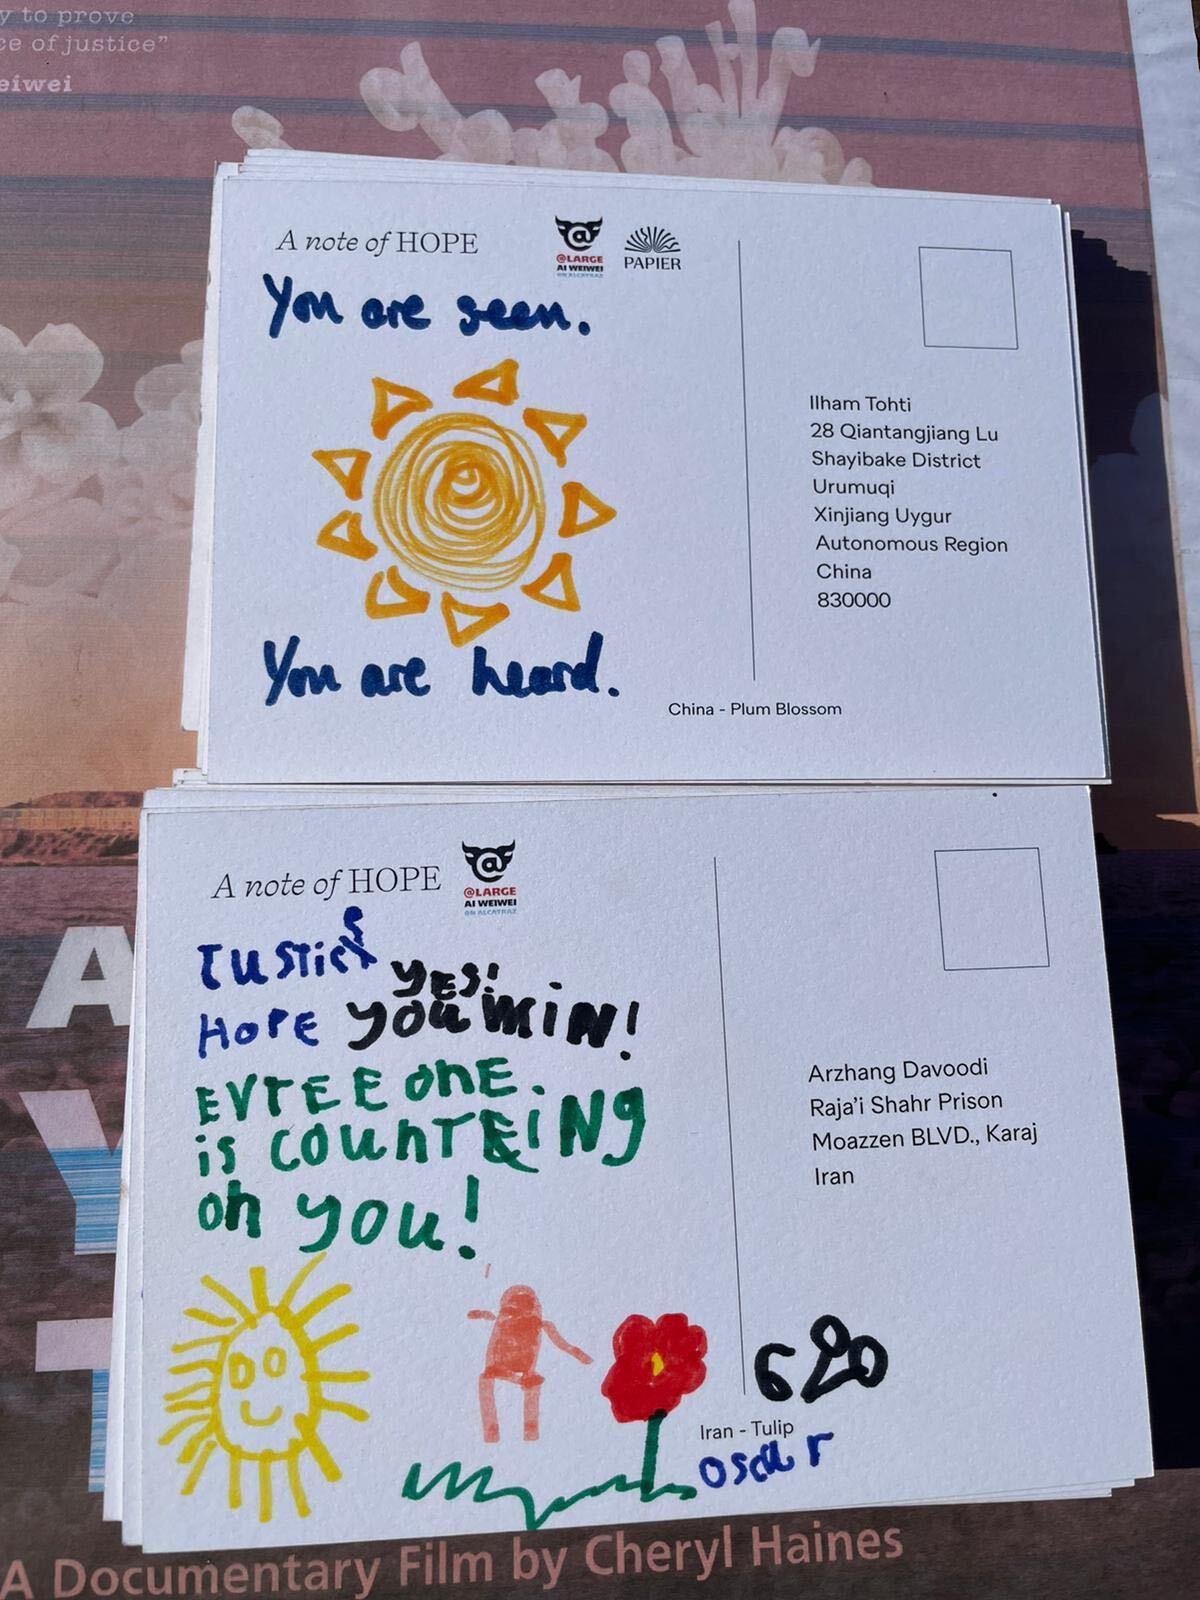 y to prove
ce of justice"
eiwei
A note of HOPE
@LARGE
AI WEIWEI
ON ALCATRAZ
PAPIER
You are seen.
You are heard.
Ilham Tohti
28 Qiantangjiang Lu
Shayibake District
Urumuqi
Xinjiang Uygur
Autonomous Region
China
830000
China - Plum Blossom
A note of HOPE
@LARGE
AI WEIWEI
ON ALCATRAZ
JUSTICE
YES!
HOPE you WIN!
EVrEE ONE.
is COUNTEING
on you!
Arzhang Davoodi
Raja'i Shahr Prison
Moazzen BLVD., Karaj
Iran
Iran - Tulip
oscar
A
Y
T
A Documentary Film by Cheryl Haines